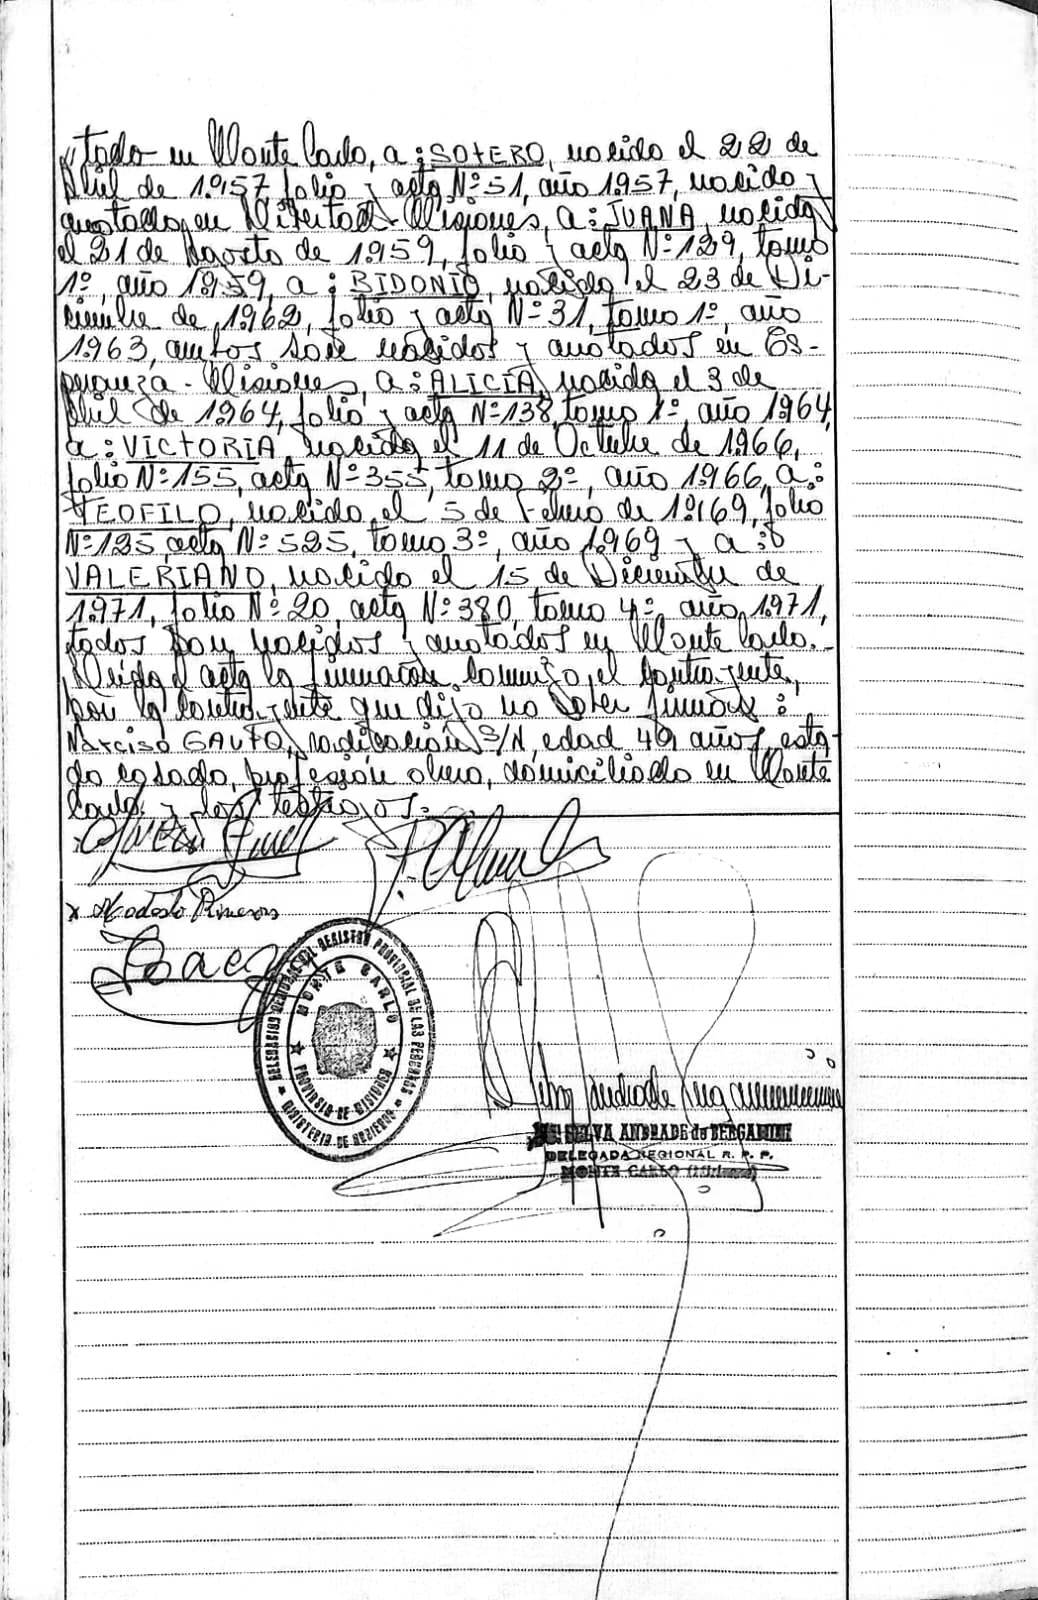 tado en Monte Carlo, a: SOTERO, nacido el 22 de
Abril de 1957 folio y acta Nº 51, año 1.957, nacido y
anotado, en Libertad - Misiones, a: JUANA, nacida
el 21 de Agosto de 1959, folio y acta Nº 129, tomo
1º, año 1959, a: BIDONIO, nacido el 23 de Di-
ciembre de 1.962, folio y acta Nº 31, tomo 1º, año
1.963, ambos son nacidos y anotados en Es-
peranza - Misiones, a: ALICIA, nacida el 3 de
Abril de 1964, folio y acta Nº 138, tomo 1º, año 1964,
a: VICTORIA, nacida el 11 de Octubre de 1.966,
folio Nº 155, acta Nº 355, tomo 2º, año 1.966, a:
TEOFILO, nacido el 5 de Febrero de 1.969, folio
Nº 125 acta Nº 525, tomo 3º, año 1.969 y a:
VALERIANO, nacido el 15 de Diciembre de
1.971, folio Nº 20, acta Nº 380, tomo 4º, año 1.971,
todos son nacidos y anotados en Monte Carlo.-
Leída el acta la firmaron conmigo, el contrayente,
por la contrayente que dijo no saber firmar:
Narciso GAUTO, radicación S/N, edad 49 años, esta-
do casado, profesión obrero, domiciliado en Monte
Carlo, y los testigos.-
x Modesto
Baez
DELEGACION DEL REGISTRO PROVINCIAL DE LAS PERSONAS
MONTE CARLO
PROVINCIA DE MISIONES
MINISTERIO DE GOBIERNO
SELVA ANDRADE de BERGAMINI
DELEGADA REGIONAL R. P. P.
MONTE CARLO (Misiones)